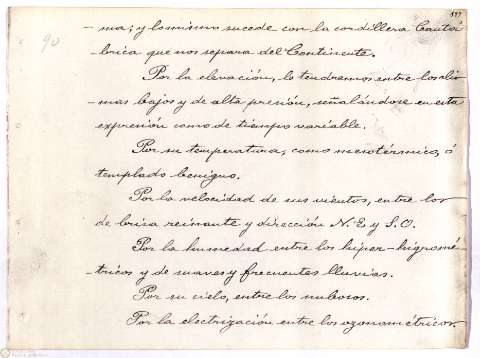 117
90
-ma; y lo mismo sucede con la cordillera Cantá-
-brica que nos separa del Continente.
Por la elevación, lo tendremos entre los cli-
-mas bajos y de alta presión, señalándose en esta
expresión como de tiempo variable.
Por su temperatura, como mesotérmico, ó
templado benigno.
Por la velocidad de sus vientos, entre los
de brisa reinante y dirección N.E y S.O.
Por la humedad entre los hiper-higromé-
-tricos y de suaves y frecuentes lluvias.
Por su cielo, entre los nubosos.
Por la electrización entre los ozonométricos.